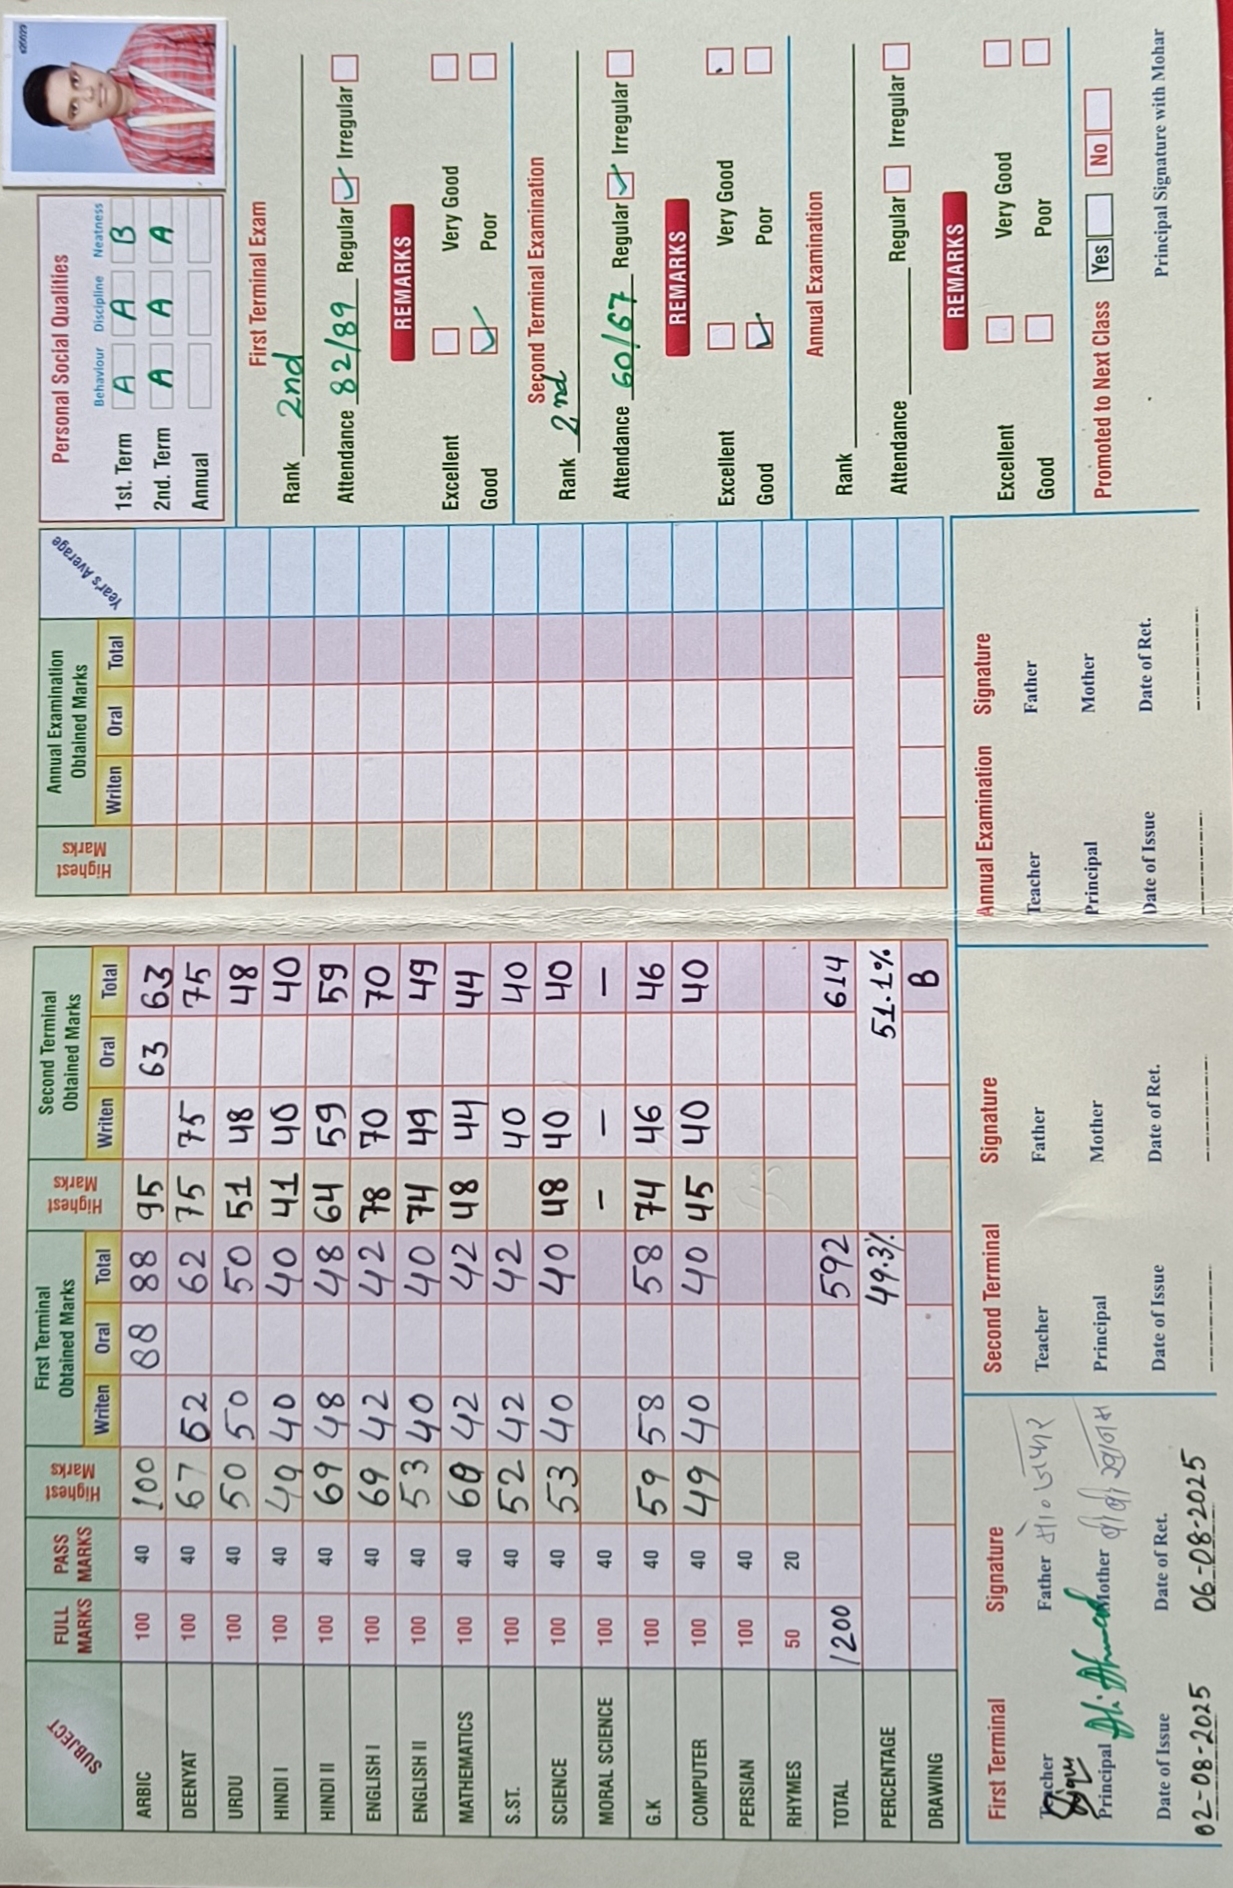 SUBJECT FULL MARKS PASS MARKS Highest Marks First Terminal Obtained Marks Highest Marks Second Terminal Obtained Marks Highest Marks Annual Examination Obtained Marks Year's Average
Writen Oral Total Writen Oral Total Writen Oral Total
ARBIC 100 40 100 88 88 95 63 63
DEENYAT 100 40 67 62 62 75 75 75
URDU 100 40 50 50 50 51 48 48
HINDI I 100 40 49 40 40 41 40 40
HINDI II 100 40 69 48 48 64 59 59
ENGLISH I 100 40 69 42 42 78 70 70
ENGLISH II 100 40 53 40 40 74 49 49
MATHEMATICS 100 40 42 42 48 44 44
S.ST. 100 40 52 42 42 40 40
SCIENCE 100 40 53 40 40 48 40 40
MORAL SCIENCE 100 40 - - -
G.K 100 40 59 58 58 74 46 46
COMPUTER 100 40 49 40 40 45 40 40
PERSIAN 100 40
RHYMES 50 20
TOTAL 1200 592 614
PERCENTAGE 49.3% 51.1%
DRAWING B
First Terminal Signature
Teacher Father मो० जफर
Principal Ali Ahmad Mother बीबी खानम
Date of Issue Date of Ret.
02-08-2025 06-08-2025
Second Terminal Signature
Teacher Father
Principal Mother
Date of Issue Date of Ret.
Annual Examination Signature
Teacher Father
Principal Mother
Date of Issue Date of Ret.
Personal Social Qualities
Behaviour Discipline Neatness
1st. Term A A B
2nd. Term A A A
Annual
First Terminal Exam
Rank 2nd
Attendance 82/89 Regular ✓ Irregular
REMARKS
Excellent Very Good
Good ✓ Poor
Second Terminal Examination
Rank 2nd
Attendance 60/67 Regular ✓ Irregular
REMARKS
Excellent Very Good
Good ✓ Poor
Annual Examination
Rank
Attendance Regular Irregular
REMARKS
Excellent Very Good
Good Poor
Promoted to Next Class Yes No
Principal Signature with Mohar